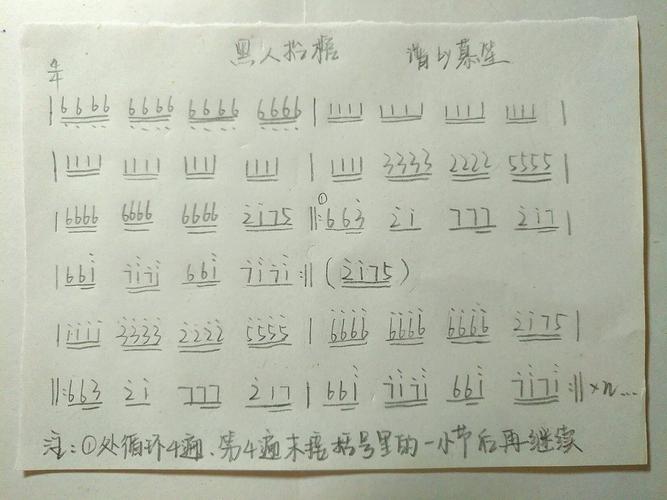 黑人抬棺 谱by慕笙
4/4
| 6666 6666 6666 6666 | 1111 1111 1111 1111 |
| 1111 1111 1111 1111 | 1111 3333 2222 5555 |
| 6666 6666 6666 2i75 ||:① 663 2i 777 2i7 |
| 66i 7i7i 66i 7i7i :|| (2i75)
| iiii 3333 2222 5555 | 6666 6666 6666 2i75 |
||: 663 2i 777 2i7 | 66i 7i7i 66i 7i7i :|| ×n...
注:①处循环4遍、第4遍末接括号里的一小节后再继续